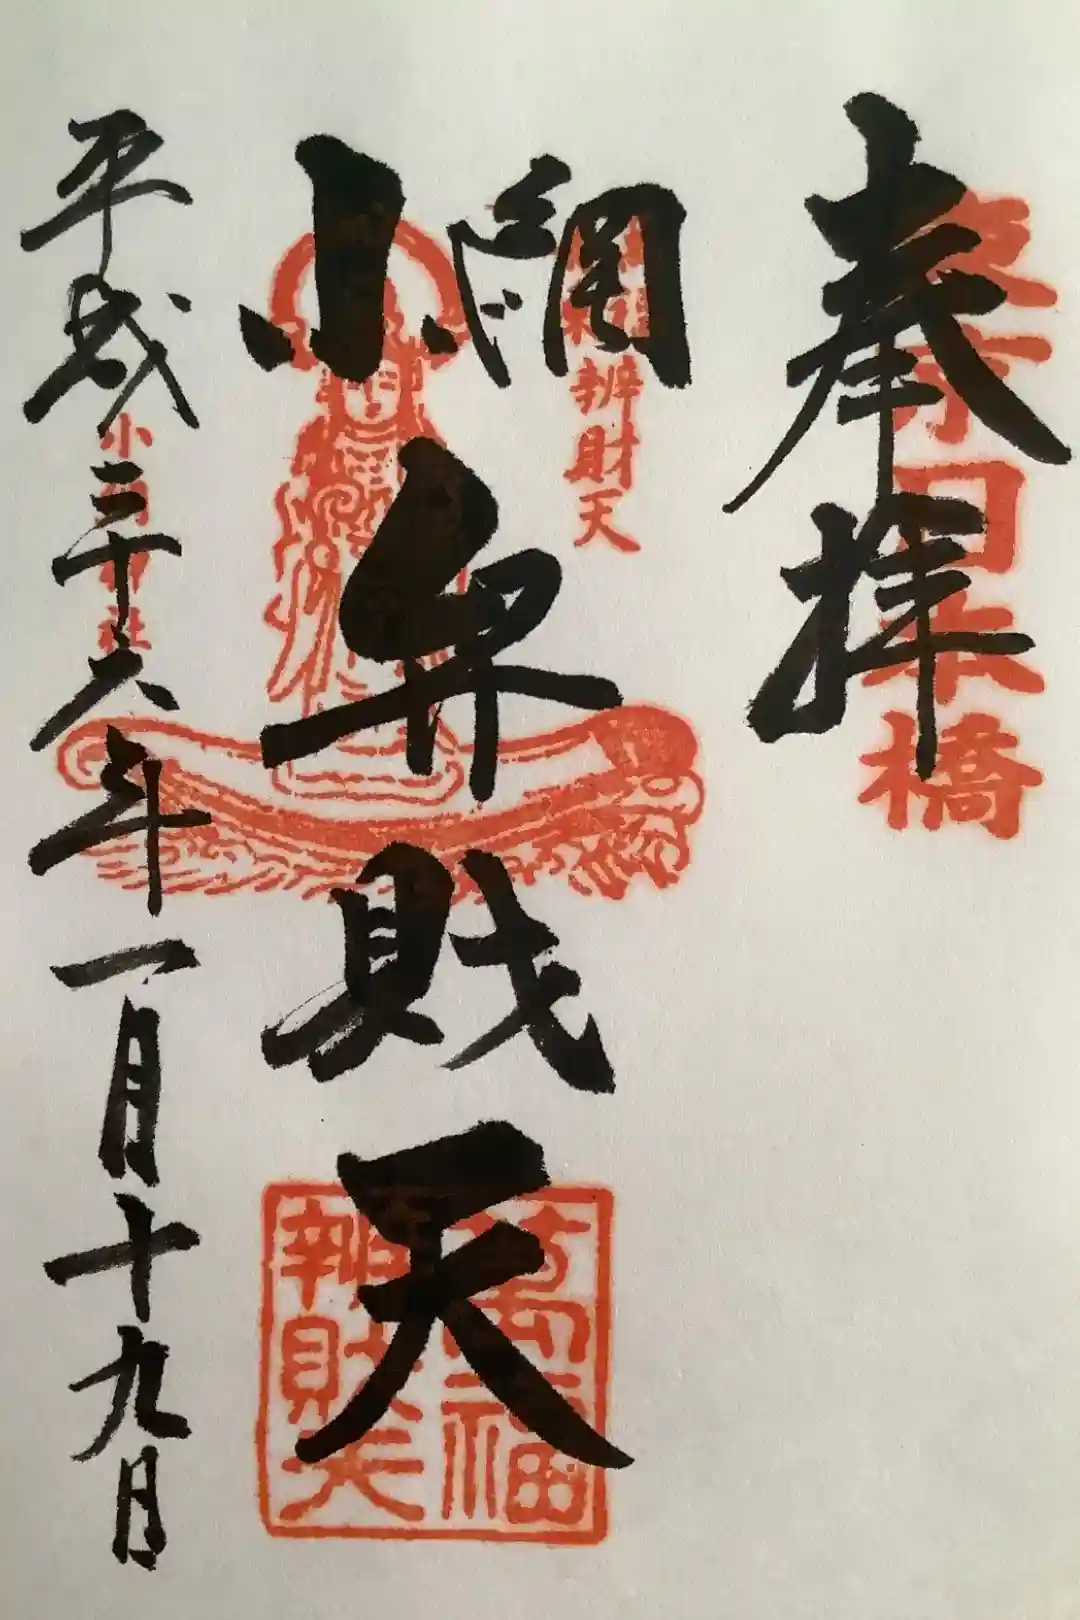 奉拝
東京日本橋
小網
弁財天
辨財天
萬福
辨財天
平成二十六年一月十九日
小網神社